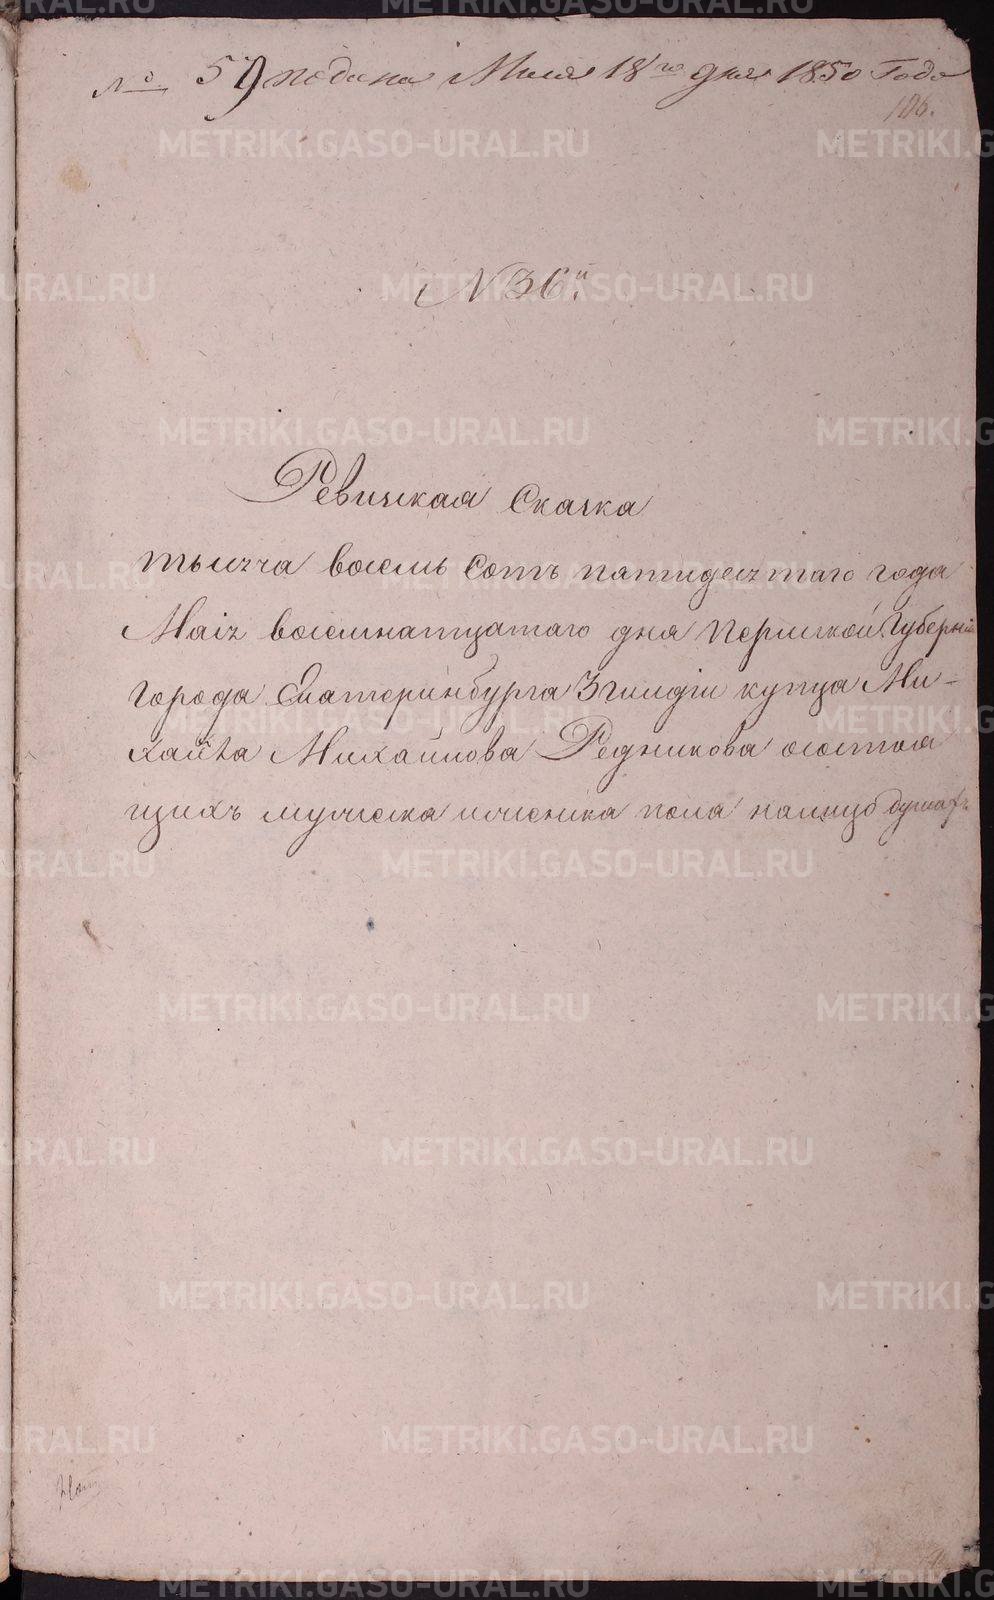 № 59 подана Маия 18го дня 1850 Года
106.
N 36й.
Ревижская Скаска
тысяча восемь сотъ пятидесятаго года
Маія восемнатцатаго дня Пермской Губерніи
города Екатеринбурга 3 гилдіи купца Ми-
хайла Михайлова Редникова осостоя
щихъ мужеска иженска пола налицо душахъ
METRIKI.GASO-URAL.RU